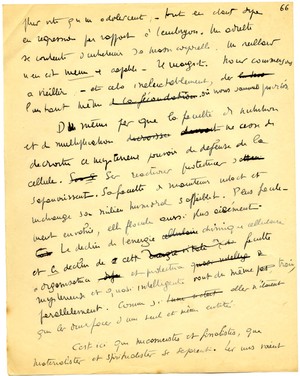 66
plus vite qu'un adolescent – tout en étant déjà
en régression par rapport d'l'embryon. Un adulte
se contente d'entretenir sa masse corporelle. Un vieillard
n'en est même + capable. Il maigrit. Nous commençons
à vieillir – et cela inéluctablement, de
l'instant même où nous sommes
De même fer que la faculté de nutrition
et de multiplication ne cesse de
décroître ce mystérieux pouvoir de défense de la
cellule. Ses réactions protectrices
s'épanouissent. Sa faculté de maintenir intact et
inchangé son milieu humoral s'affaiblit. Plus facile-
ment envahie, elle succombe aussi plus aisément.
Le déclin de l'énergie chimique cellulaire
et le déclin de cette faculté
d'organisation et protection
mystérieuse et quasi intelligente vont de même train
parallèlement. Comme si aller n'étaient
que les deux faces d'un seul et même entité.
C'est ici que mécanistes et finalistes, que
matérialistes et spiritualistes se séparent. Les uns voient